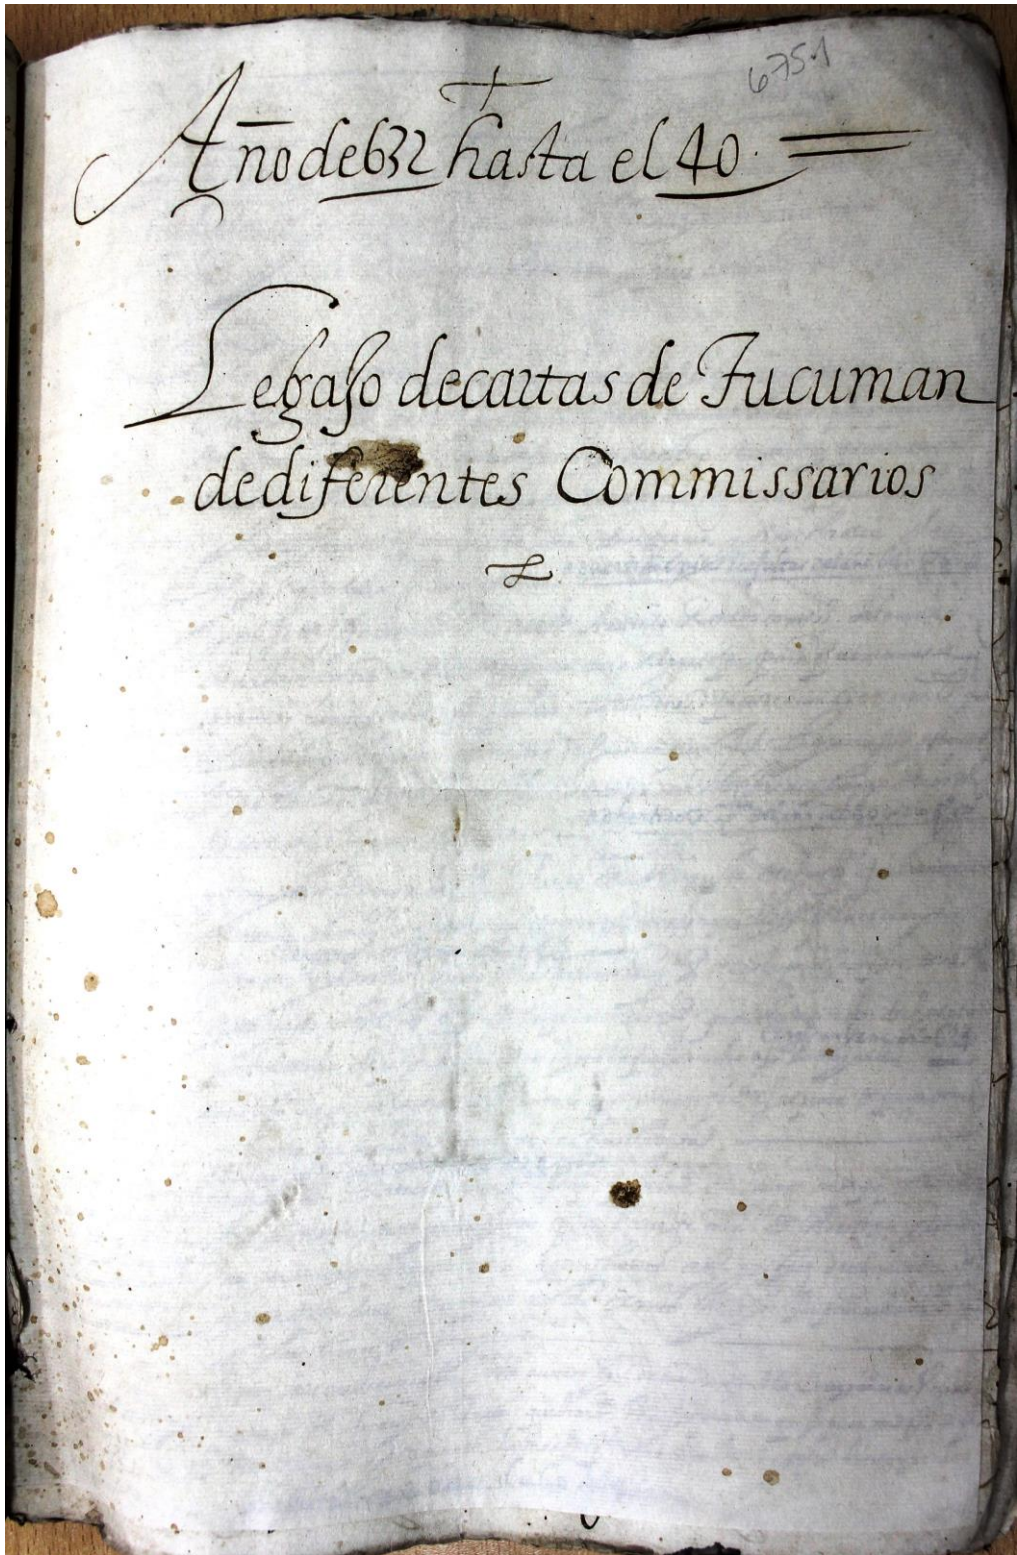 6751
†
Año de 632 hasta el 40.
Legaso de cartas de Tucuman
de diferentes Commissarios